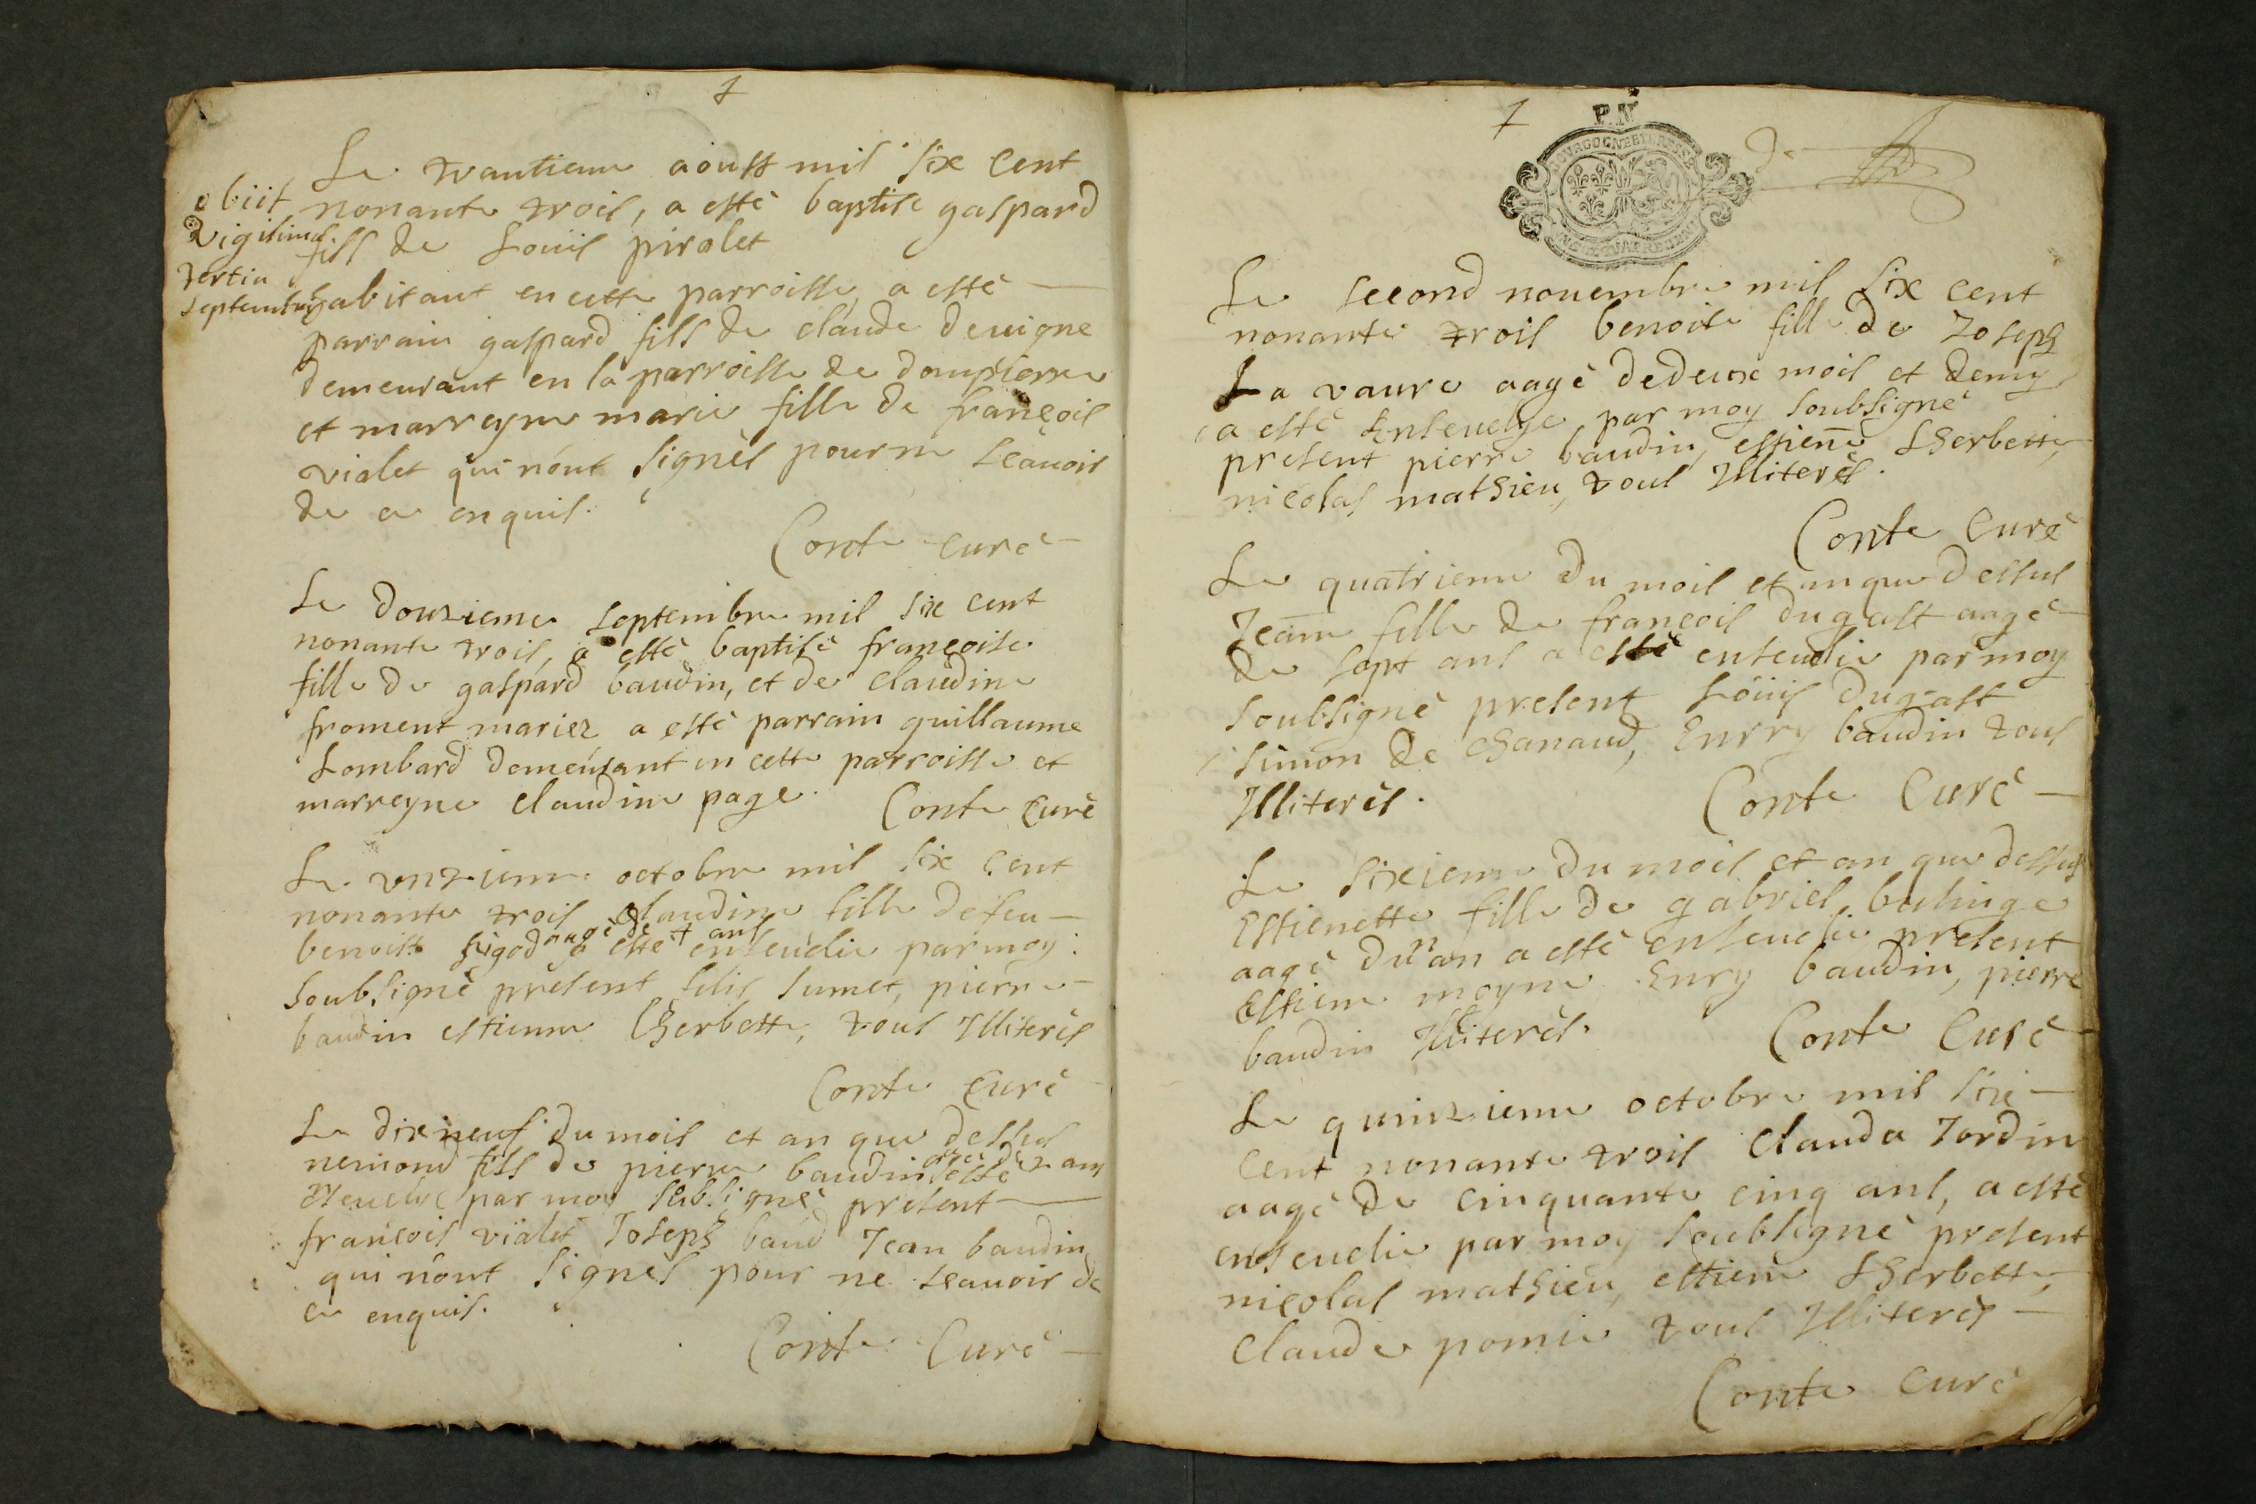 Le trantieme aoust mil six cent
nonante trois, a esté baptisé gaspard
fils de Loüis pirolet
habitant en cette parroisse, a esté
parrain gaspard fils de claude devigne
demeurant en la parroisse de dompierre
et marreyne marie fille de françois
vialet qui n'ont signés pour ne sçavoir
de ce enquis.
Conte curé
obiit
vigesima
tertia
septembris
Le douzieme septembre mil six cent
nonante trois, a esté baptisé françoise
fille de gaspard baudin, et de claudine
froment mariez a esté parrain guillaume
Lombard demeurant en cette parroisse et
marreyne claudine page.
Conte Curé
Le unzieme octobre mil six cent
nonante trois claudine fille defeu
benoist agé de 7 ans a esté ensevelie par moy
soubsigné present sumet, pierre
baudin estienne Lherbette, tous Illiterés
Conte Curé
Le dixneuf du mois et an que dessus
fils de pierre baudin agé de ans a esté
par moy subsigné present
françois vialet Joseph baud Jean baudin
qui n'ont signés pour ne sçavoir de
ce enquis.
Conte Curé
P.N
BOURGOGNE ET BRESSE
Le second novembre mil six cent
nonante trois benoite fille de Joseph
La vaure aagé de deux mois et demy
a esté Ensevelye par moy soubsigné
present pierre baudin, estienē Lherbette,
nicolas mathieu, tous Illiterés.
Conte Curé
Le quatrieme du mois et an que dessus
Jeāne fille de françois dugast aagé
de sept ans a esté ensevelie par moy
soubsigné present Loüis dugast
simon de chanaud, Enrry baudin tous
Illiterés.
Conte Curé
Le sixieme du mois et an que dessus
Estienette fille de gabriel
aagé d'un an a esté ensevelie present
Estiene moyne Enry baudin, pierre
baudin Illiterés.
Conte Curé
Le quinzieme octobre mil six
cent nonante trois Clauda Jordin
aagé de cinquante cinq ans, a esté
ensevelie par moy soubsigné present
nicolas mathieu, estiene Lherbette,
Claude pomie tous Illiterés
Conte curé